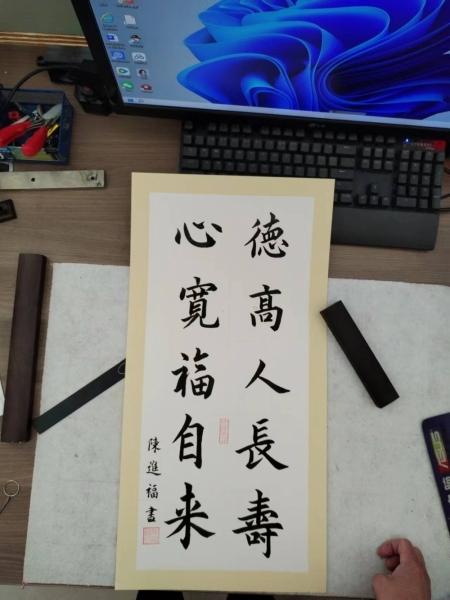 德高人長壽
心寬福自来
陳進福書